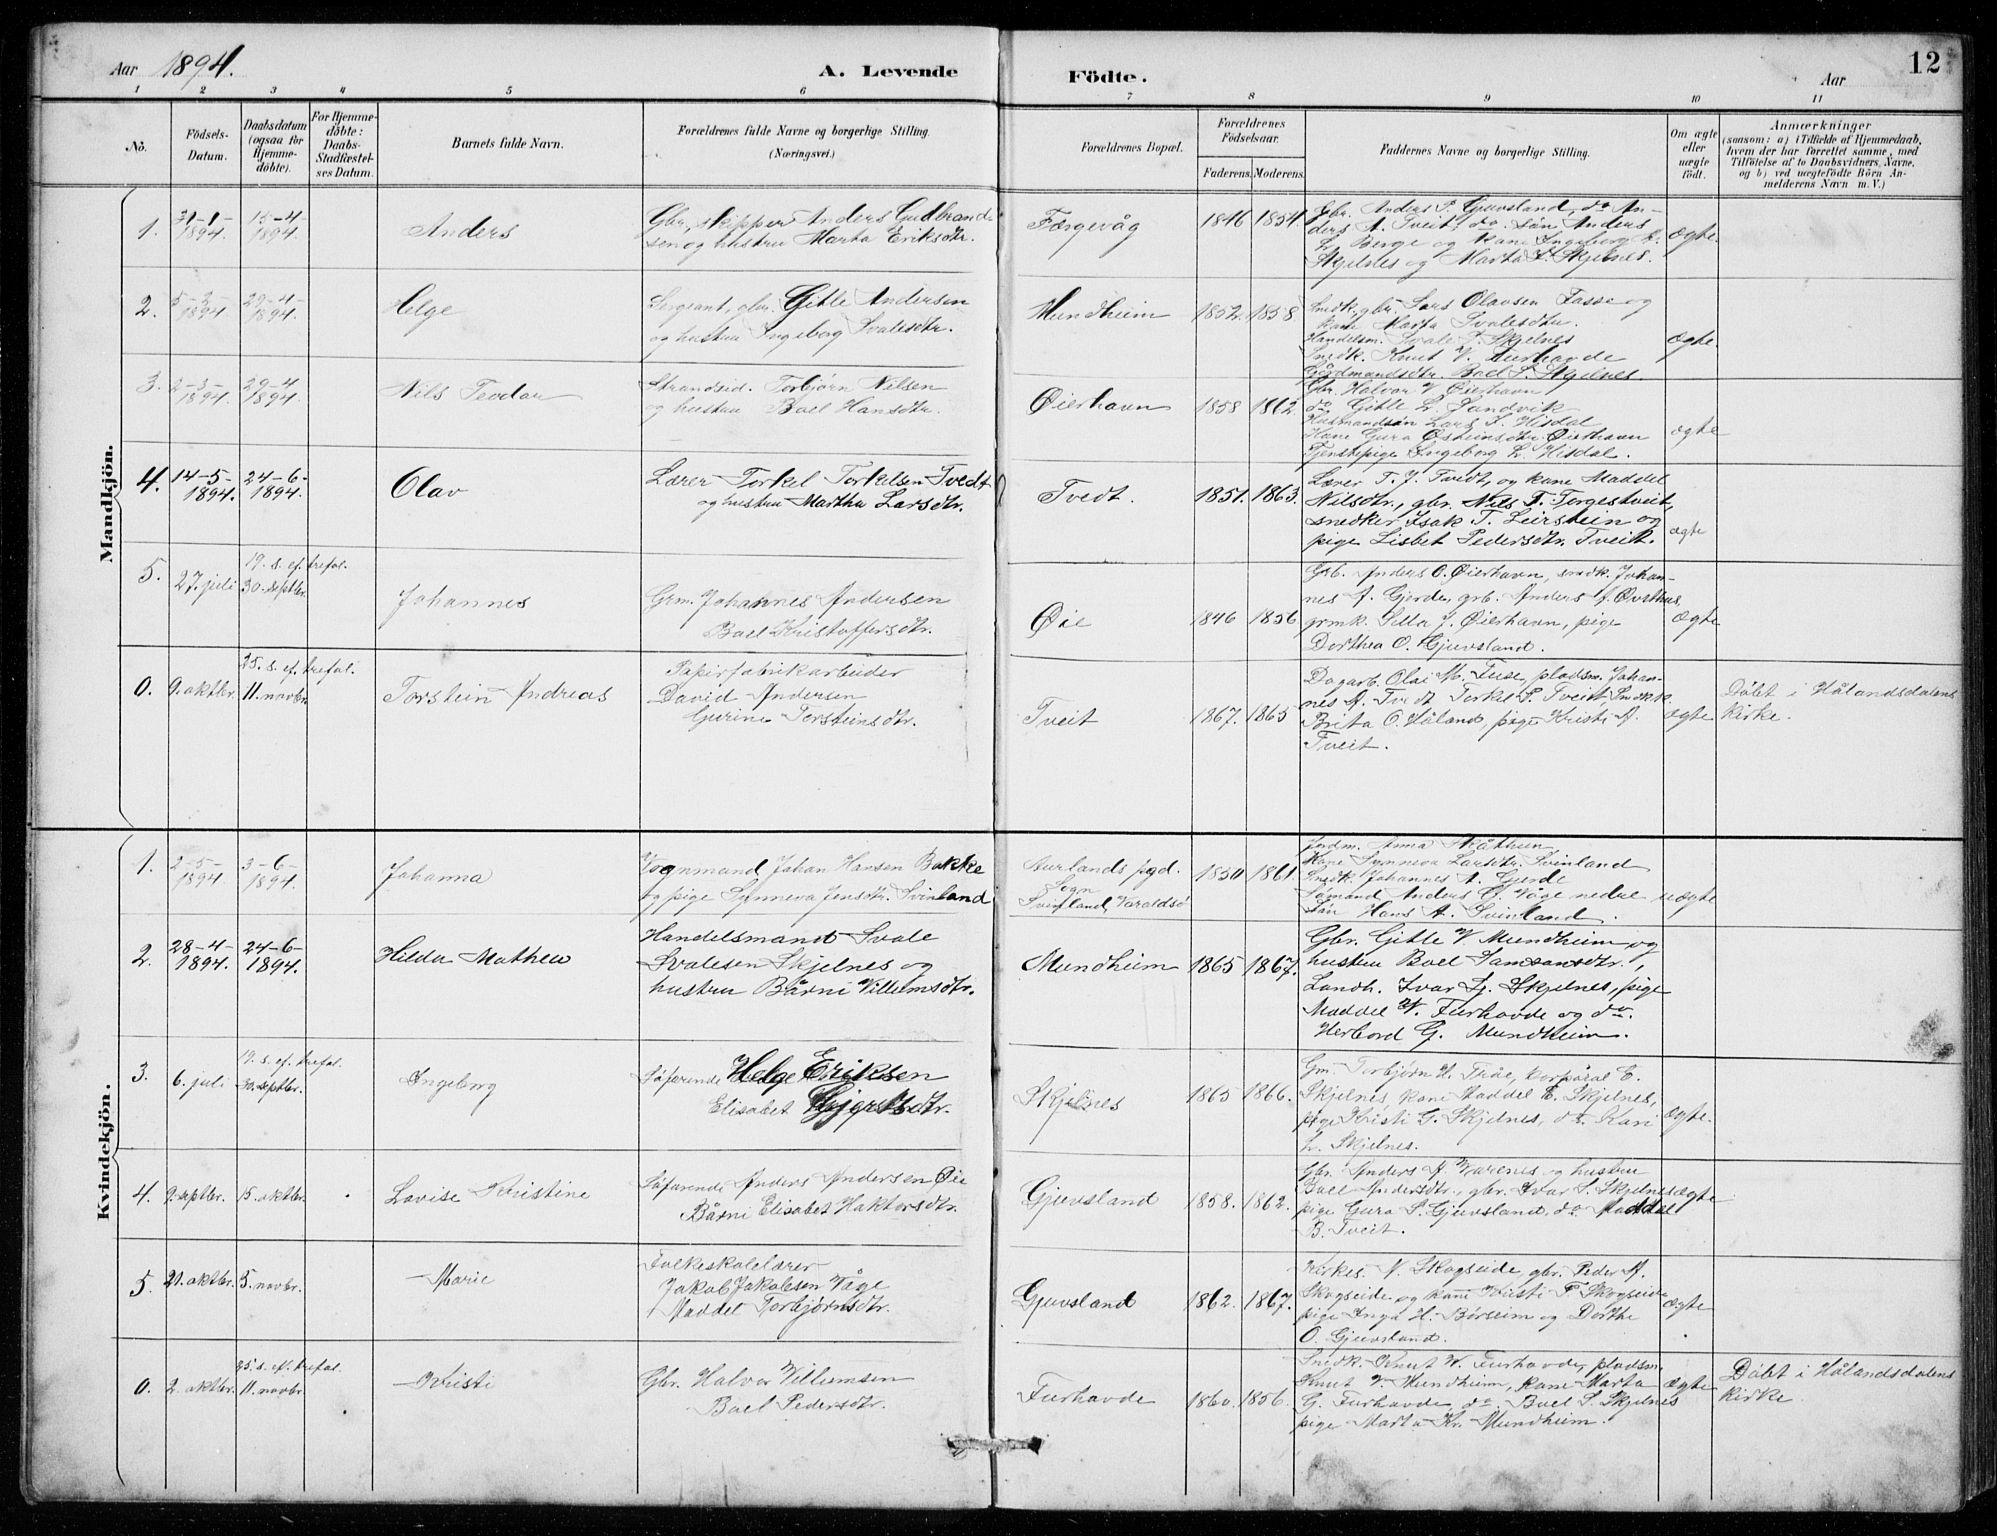 Aar 1894. A. Levende Födte. Aar 12
1 2 3 4 5 6 7 8 9 10 11
No.
Födsels-
Datum.
Daabsdatum
(ogsaa for
Hjemme-
döbte).
For Hjemme-
döbte:
Daabs-
Stadfæstel-
ses Datum.
Barnets fulde Navn.
Forældrenes fulde Navne og borgerlige Stilling.
(Næringsvei.)
Forældrenes Bopæl.
Forældrenes
Födselsaar.
Faderens. Moderens.
Faddernes Navne og borgerlige Stilling.
Om ægte
eller
uægte
födt.
Anmærkninger
(saasom: a) i Tilfælde af Hjemmedaab,
hvem der har forrettet samme, med
Tilföielse af to Daabsvidners Navne,
og b) ved uægtefödte Börn An-
melderens Navn m. V.)
Mandkjön.
1.
31-1-
1894.
15-4-
1894.
Anders
Gbr, skipper Anders Gudbrand-
sen og hustru Marta Eriksdtr.
Færgevåg
1846 1854.
Gbr. Anders P. Gjuvsland, do An-
ders A. Tveit, do. Søn Anders
L. Berge og kane Ingeborg
Skjelnes og Marta S. Skjelnes.
Ægte.
2.
5-2-
1894.
29-4-
1894.
Helge
Sergeant, gbr. Gitle Andersen
og hustru Ingeborg Svalesdtr.
Mundheim
1852. 1858
Snedk, gbr. Lars Olavsen Tasse og
kane Marta Svalesdtr.
Handelsm. Svale S. Skjelnes
Snedk. Knut V. Furhovde
Gårdmandsdtr. Boel S. Skjelnes.
Ægte.
3.
2-3-
1894.
29-4
1894.
Nils Teodor
Strandsid. Torbjørn Nilsen
og hustru Boel Hansdtr.
Øierhavn
1858 1862.
Gbr. Halvor V. Øierhavn
do Gitle L. Sandvik
Husmandsøn Lars S. Hisdal
Kane Gura Østeinsdtr. Øierhavn
Tjenstepige Ingeborg L. Hisdal.
ægte
4.
14-5-
1894.
24-6-
1894.
Olav
Lærer Torkel Torkelsen Tvedt
og hustru Martha Larsdtr.
Tvedt.
1851. 1863.
Lærer T. J. Tvedt, og kane Maddel
Nilsdtr., gbr. Nils T. Torgestveit,
snedker Isak T. Leirstein og
pige Lisbet Pedersdtr. Tveit.
ægte
5.
27. juli
19. s. ef. trefol.
30. septbr.
Johannes
Grm. Johannes Andersen
Boel Kristoffersdtr.
Øie
1846 1856
Grb. Anders O. Øierhavn, snedk. Johan-
nes A. Gjerde, grb. Anders A. Øvsthus,
grmk. Silla J. Øierhavn, pige
Dorthea O. Gjuvsland.
Ægte
0.
9. oktbr.
25. s. ef. trefol.
11. novbr.
Torstein Andreas
Papirfabrikarbeider
David Andersen
Gurine Torsteinsdtr.
Tveit
1867. 1865
Dagarb. Olai M. Fuse, pladsm. Johan-
nes A. Tvedt Torkel P. Tveit, Snedkk
Brita O. Håland, pige Kristi A.
Tveit.
ægte
Döbt i Hålandsdalens
kirke.
Kvindekjön.
1.
2-5-
1894
3-6
1894.
Johanna
Vognmand Johan Hansen Bakke
og pige Synneva Jensdtr. Svinland
Aurlands pgd.
Sogn
Svinland, Varaldsö
1850 1861.
Indm. Anna
Kane Synneva Larsdtr. Svinland
Snedk. Johannes A. Gjerde
Sømand Anders G. Våge nedre
Søn Hans A. Svinland.
uægte
2.
28-4-
1894.
24-6-
1894.
Hilda Mathea
Handelsmand Svale
Svalesen Skjelnes og
hustru Bårni Villumsdtr.
Mundheim
1865 1867.
Gbr. Gitle V. Mundheim og
hustru Boel Samsonsdtr.,
Landh. Ivar Lj. Skjelnes, pige
Maddel V. Furhovde og do.
Herbord G. Mundheim.
3.
6. juli
19. s. ef. trefol.
30. septbr.
Ingeborg
Söfarende Helge Eriksen
Elisabet
Skjelnes
1865 1866.
Gm. Torbjørn H. Tråe, korporal E.
Skjelnes, kane Maddel E. Skjelnes,
pige Kristi G. Skjelnes, do. Kari
L. Skjelnes.
Ægte.
4.
9. septbr. 15. oktbr.
Lovise Kristine
Söfarende Anders Andersen Øie
Bårni Elisabet Haktorsdtr.
Gjuvsland
1858. 1862.
Gbr. Anders A. Varenes og hustru
Boel Andersdtr., gbr. Ivar S. Skjelnes
pige Gura P. Gjuvsland, do. Maddel
B. Tveit.
ægte
5
21. oktbr. 5. novbr.
Marie
Folkeskolelærer
Jakob Jakobsen Våge
Maddel Torbjørnsdtr.
Gjuvsland
1862. 1867.
Kirkes. N. Skogseide, gbr. Peder A.
Skogseide og kane Kristi T. Skogseide
pige Inga H. Börseim og Dorthe
O. Gjuvsland.
ægte
0.
2. oktbr.
25. s. ef. trefol.
11. novbr.
Kristi
Gbr. Halvor Villumsen
Boel Pedersdtr.
Furhovde
1860. 1856.
Snedk. Knut V. Furhovde, pladsm.
Knut V. Mundheim, kane Marta
G. Furhovde, do. Boel S. Skjelnes
pige Marta Kr. Mundheim.
ægte
Döbt i Hålandsdalens
kirke.